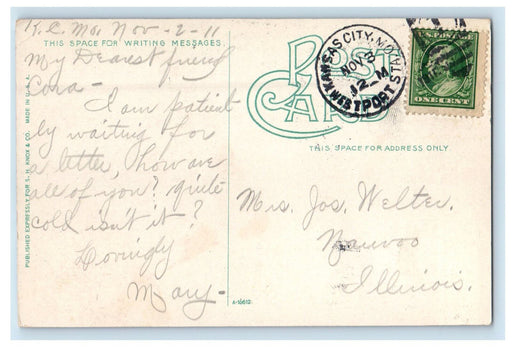 K.C. Mo. Nov-2-11
THIS SPACE FOR WRITING MESSAGES
My Dearest friend
Cora-
I am patient
ly waiting for
a letter, how are
all of you? quite
cold isn't it?
Lovingly
Mary-
PUBLISHED EXPRESSLY FOR S. H. KNOX & CO. MADE IN U.S.A.
POST CARD
KANSAS CITY, MO.
NOV 3
12 M
WESTPORT STA.
U.S. POSTAGE
ONE CENT
THIS SPACE FOR ADDRESS ONLY
Mrs. Jos. Welter.
Nauvoo
Illinois.
A-16612.